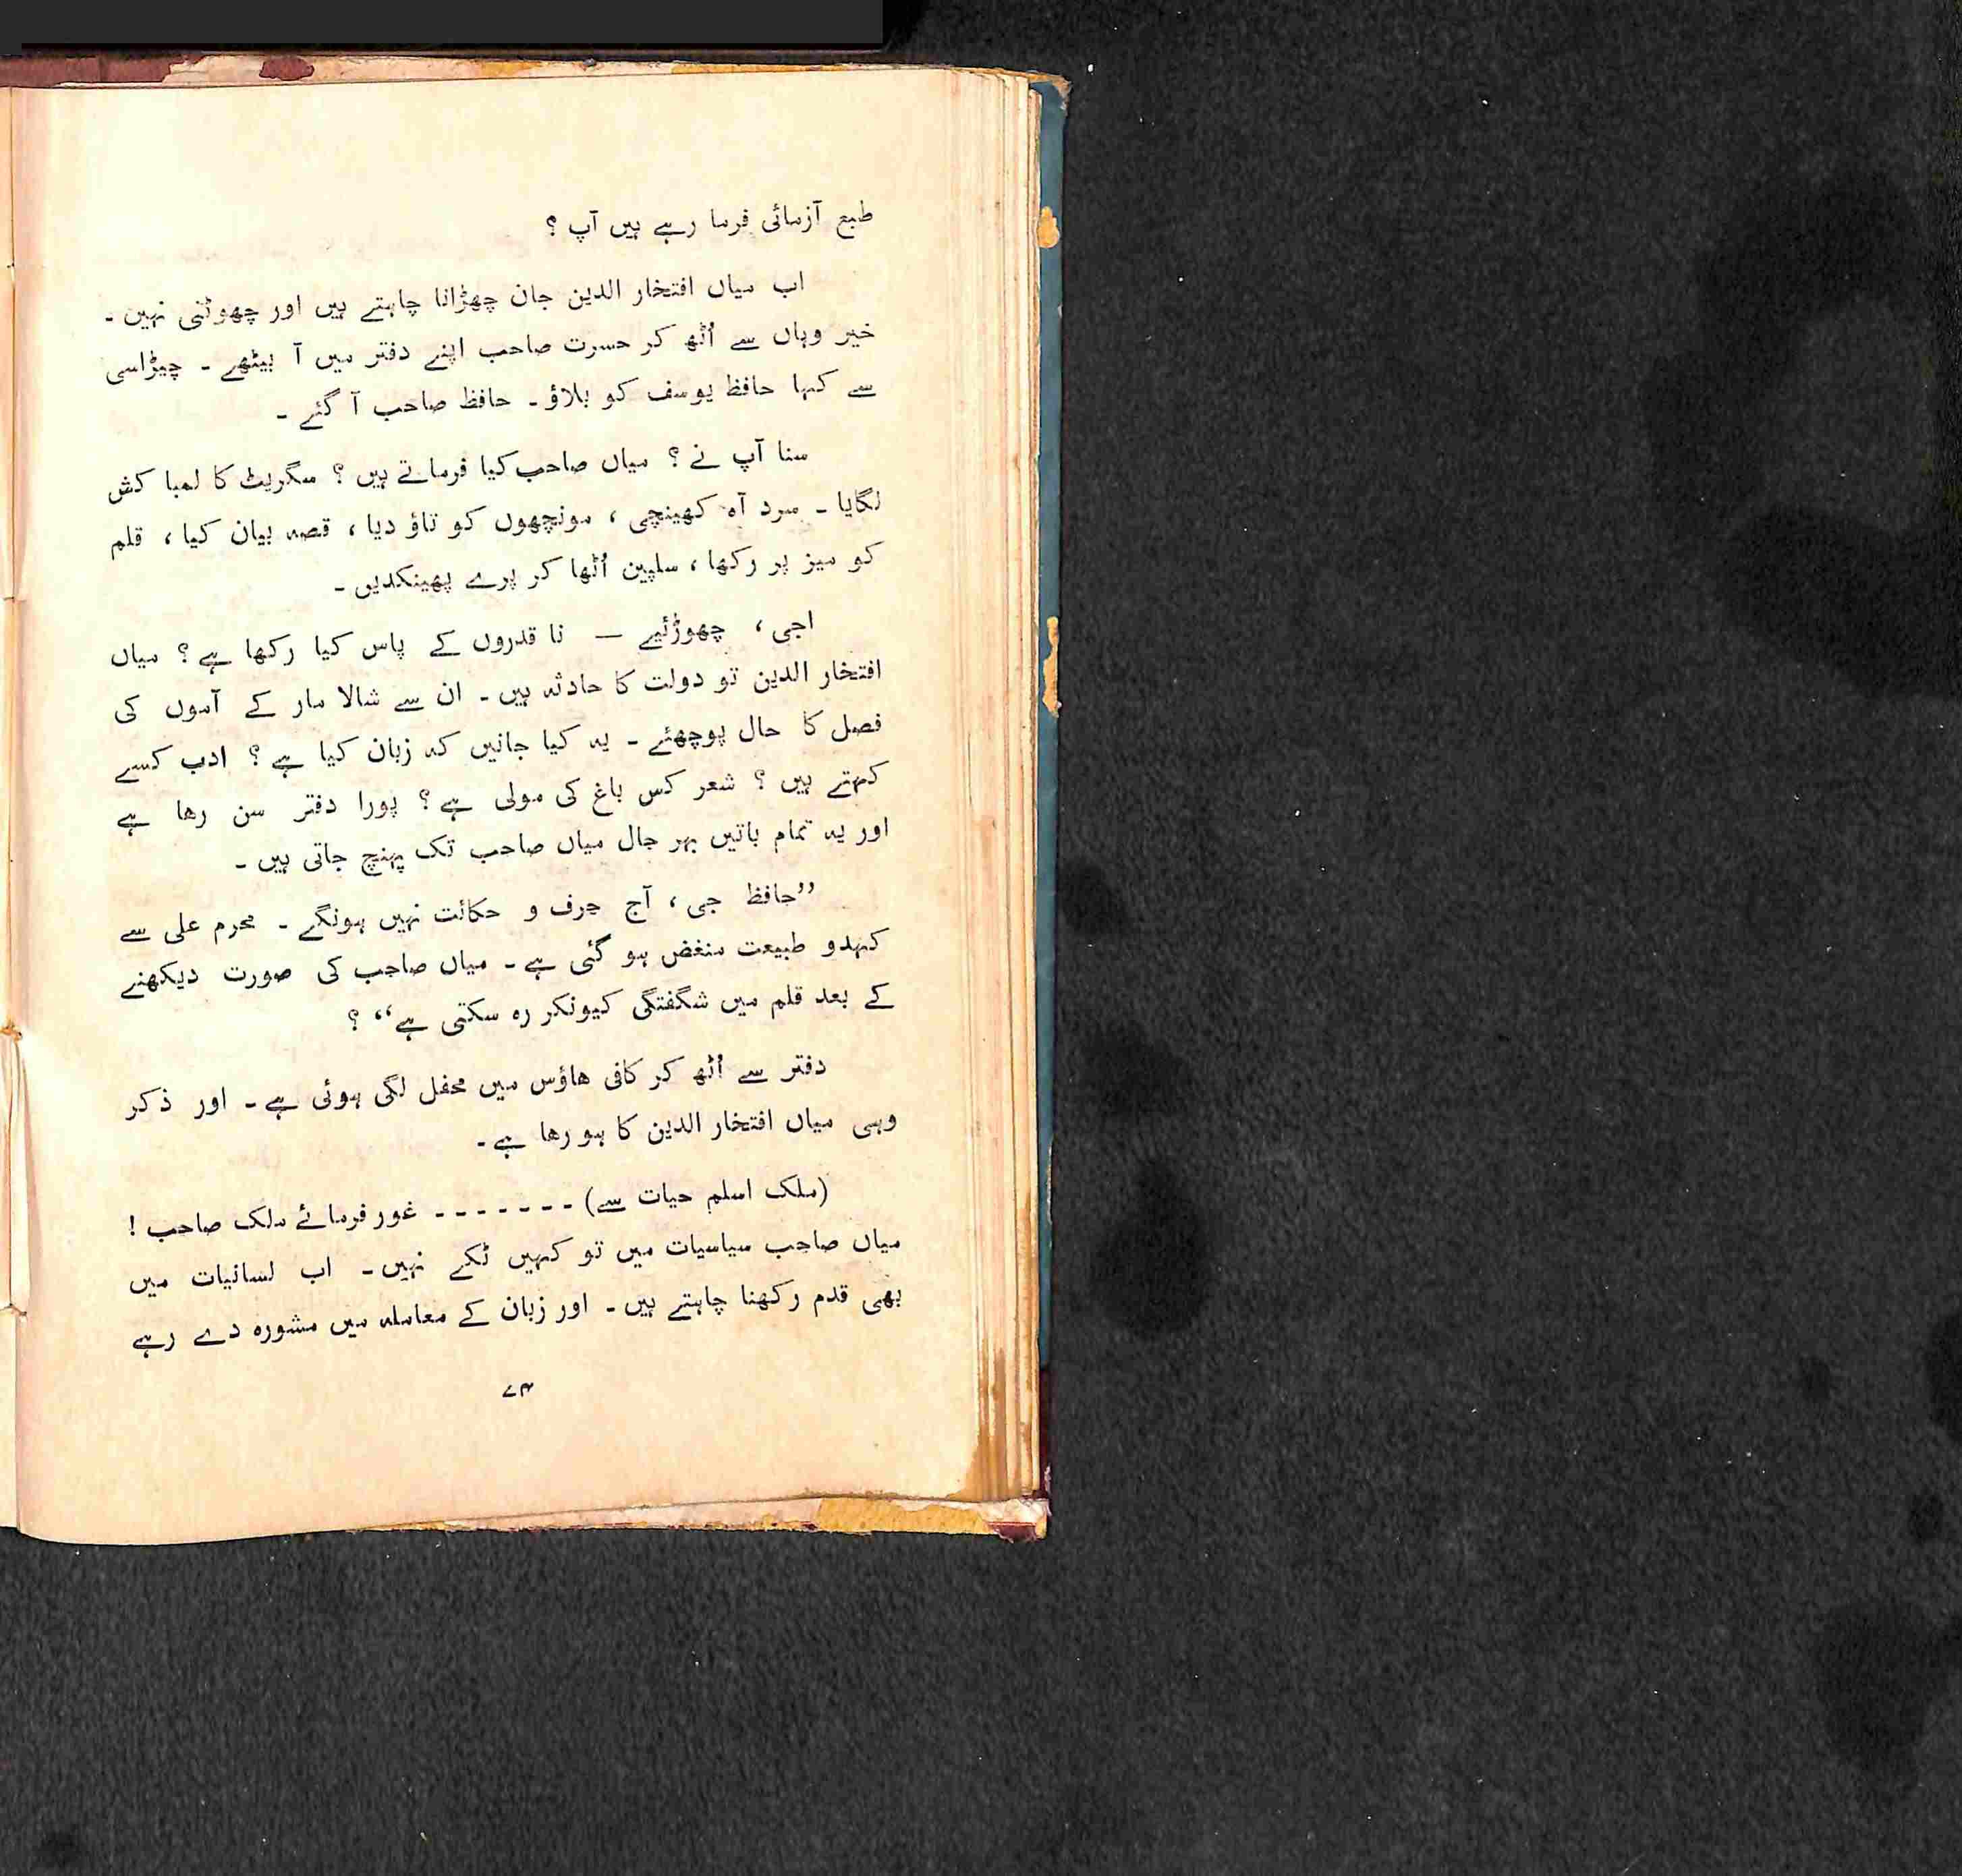 طبع آزمائی فرما رہے ہیں آپ ؟
اب میاں افتخار الدین جان چھڑانا چاہتے ہیں اور چھوٹتی نہیں ۔
خیر وہاں سے اُٹھ کر حسرت صاحب اپنے دفتر میں آ بیٹھے ۔ چپڑاسی
سے کہا حافظ یوسف کو بلاؤ ۔ حافظ صاحب آ گئے ۔
سنا آپ نے ؟ میاں صاحب کیا فرماتے ہیں ؟ سگریٹ کا لمبا کش
لگایا ۔ سرد آہ کھینچی ، مونچھوں کو تاؤ دیا ، قصہ بیان کیا ، قلم
کو میز پر رکھا ، سلپین اُٹھا کر پرے پھینکدیں ۔
اجی ، چھوڑئیے — نا قدروں کے پاس کیا رکھا ہے ؟ میاں
افتخار الدین تو دولت کا حادثہ ہیں ۔ ان سے شالا مار کے آموں کی
فصل کا حال پوچھئے ۔ یہ کیا جانیں کہ زبان کیا ہے ؟ ادب کسے
کہتے ہیں ؟ شعر کس باغ کی مولی ہے ؟ پورا دفتر سن رھا ہے
اور یہ تمام باتیں بہر حال میاں صاحب تک پہنچ جاتی ہیں ۔
”حافظ جی ، آج حرف و حکائت نہیں ہونگے ۔ محرم علی سے
کہدو طبیعت منغض ہو گئی ہے ۔ میاں صاحب کی صورت دیکھنے
کے بعد قلم میں شگفتگی کیونکر رہ سکتی ہے“ ؟
دفتر سے اُٹھ کر کافی ھاؤس میں محفل لگی ہوئی ہے ۔ اور ذکر
وہی میاں افتخار الدین کا ہو رھا ہے ۔
(ملک اسلم حیات سے) - - - - - - - غور فرمائے ملک صاحب !
میاں صاحب سیاسیات میں تو کہیں ٹکے نہیں ۔ اب لسانیات میں
بھی قدم رکھنا چاہتے ہیں ۔ اور زبان کے معاملہ میں مشورہ دے رہے
۷۳